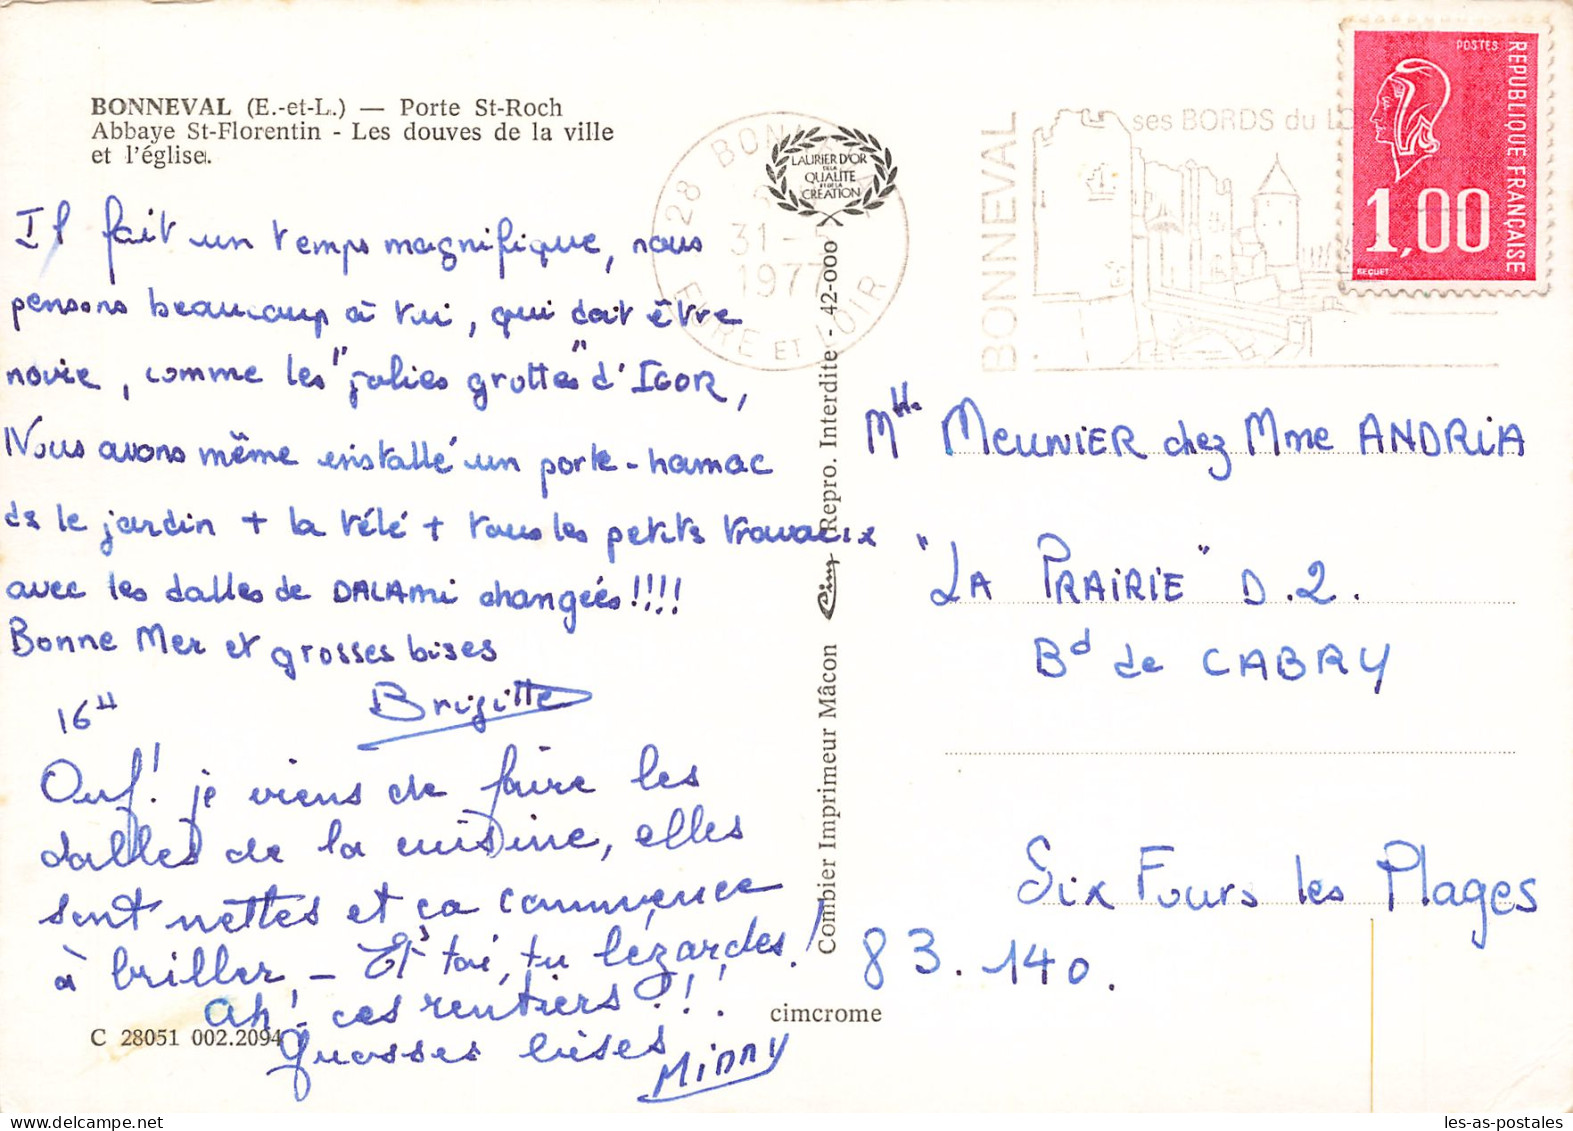 BONNEVAL (E.-et-L.) — Porte St-Roch
Abbaye St-Florentin - Les douves de la ville
et l'église.
Il fait un temps magnifique, nous
pensons beaucoup à tui, qui doit être
novie, comme les "jolies grottes" d'IGOR,
Nous avons même installé un porte-hamac
ds le jardin + la télé + tous les petits travaux
avec les dalles de DALAmi changées!!!!
Bonne Mer et grosses bises
Brigitte
16H
Ouf! je viens de faire les
dalles de la cuisine, elles
sont nettes et ça commence
à briller. — Et toi, tu lézardes!
Ah! ces rentiers!!!
Grosses bises
Minny
C 28051 002.2094
cimcrome
Combier Imprimeur Mâcon Cim Repro. Interdite - 42-000
LAURIER D'OR
DE LA
QUALITE
ET DE LA
CREATION
28 BONNEVAL
31-5
1977
EURE ET LOIR
BONNEVAL
ses BORDS du LO
POSTES
REPUBLIQUE FRANÇAISE
1,00
BEQUET
Mlle MEUNIER chez Mme ANDRIA
"LA PRAIRIE" D.2.
Bd de CABRY
Six Fours les Plages
83.140.
les-as-postales